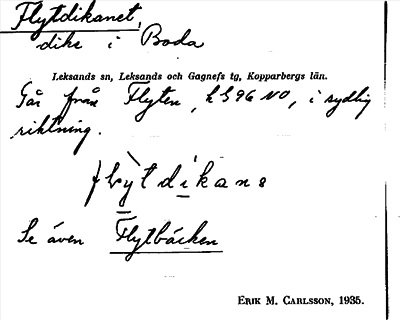 Flytdikanet,
dike i Boda
Leksands sn, Leksands och Gagnefs tg, Kopparbergs län.
Går från Flyten, LS96 NO, i sydlig
riktning.
flỳtdikans
Se även Flytbäcken
ERIK M. CARLSSON, 1935.